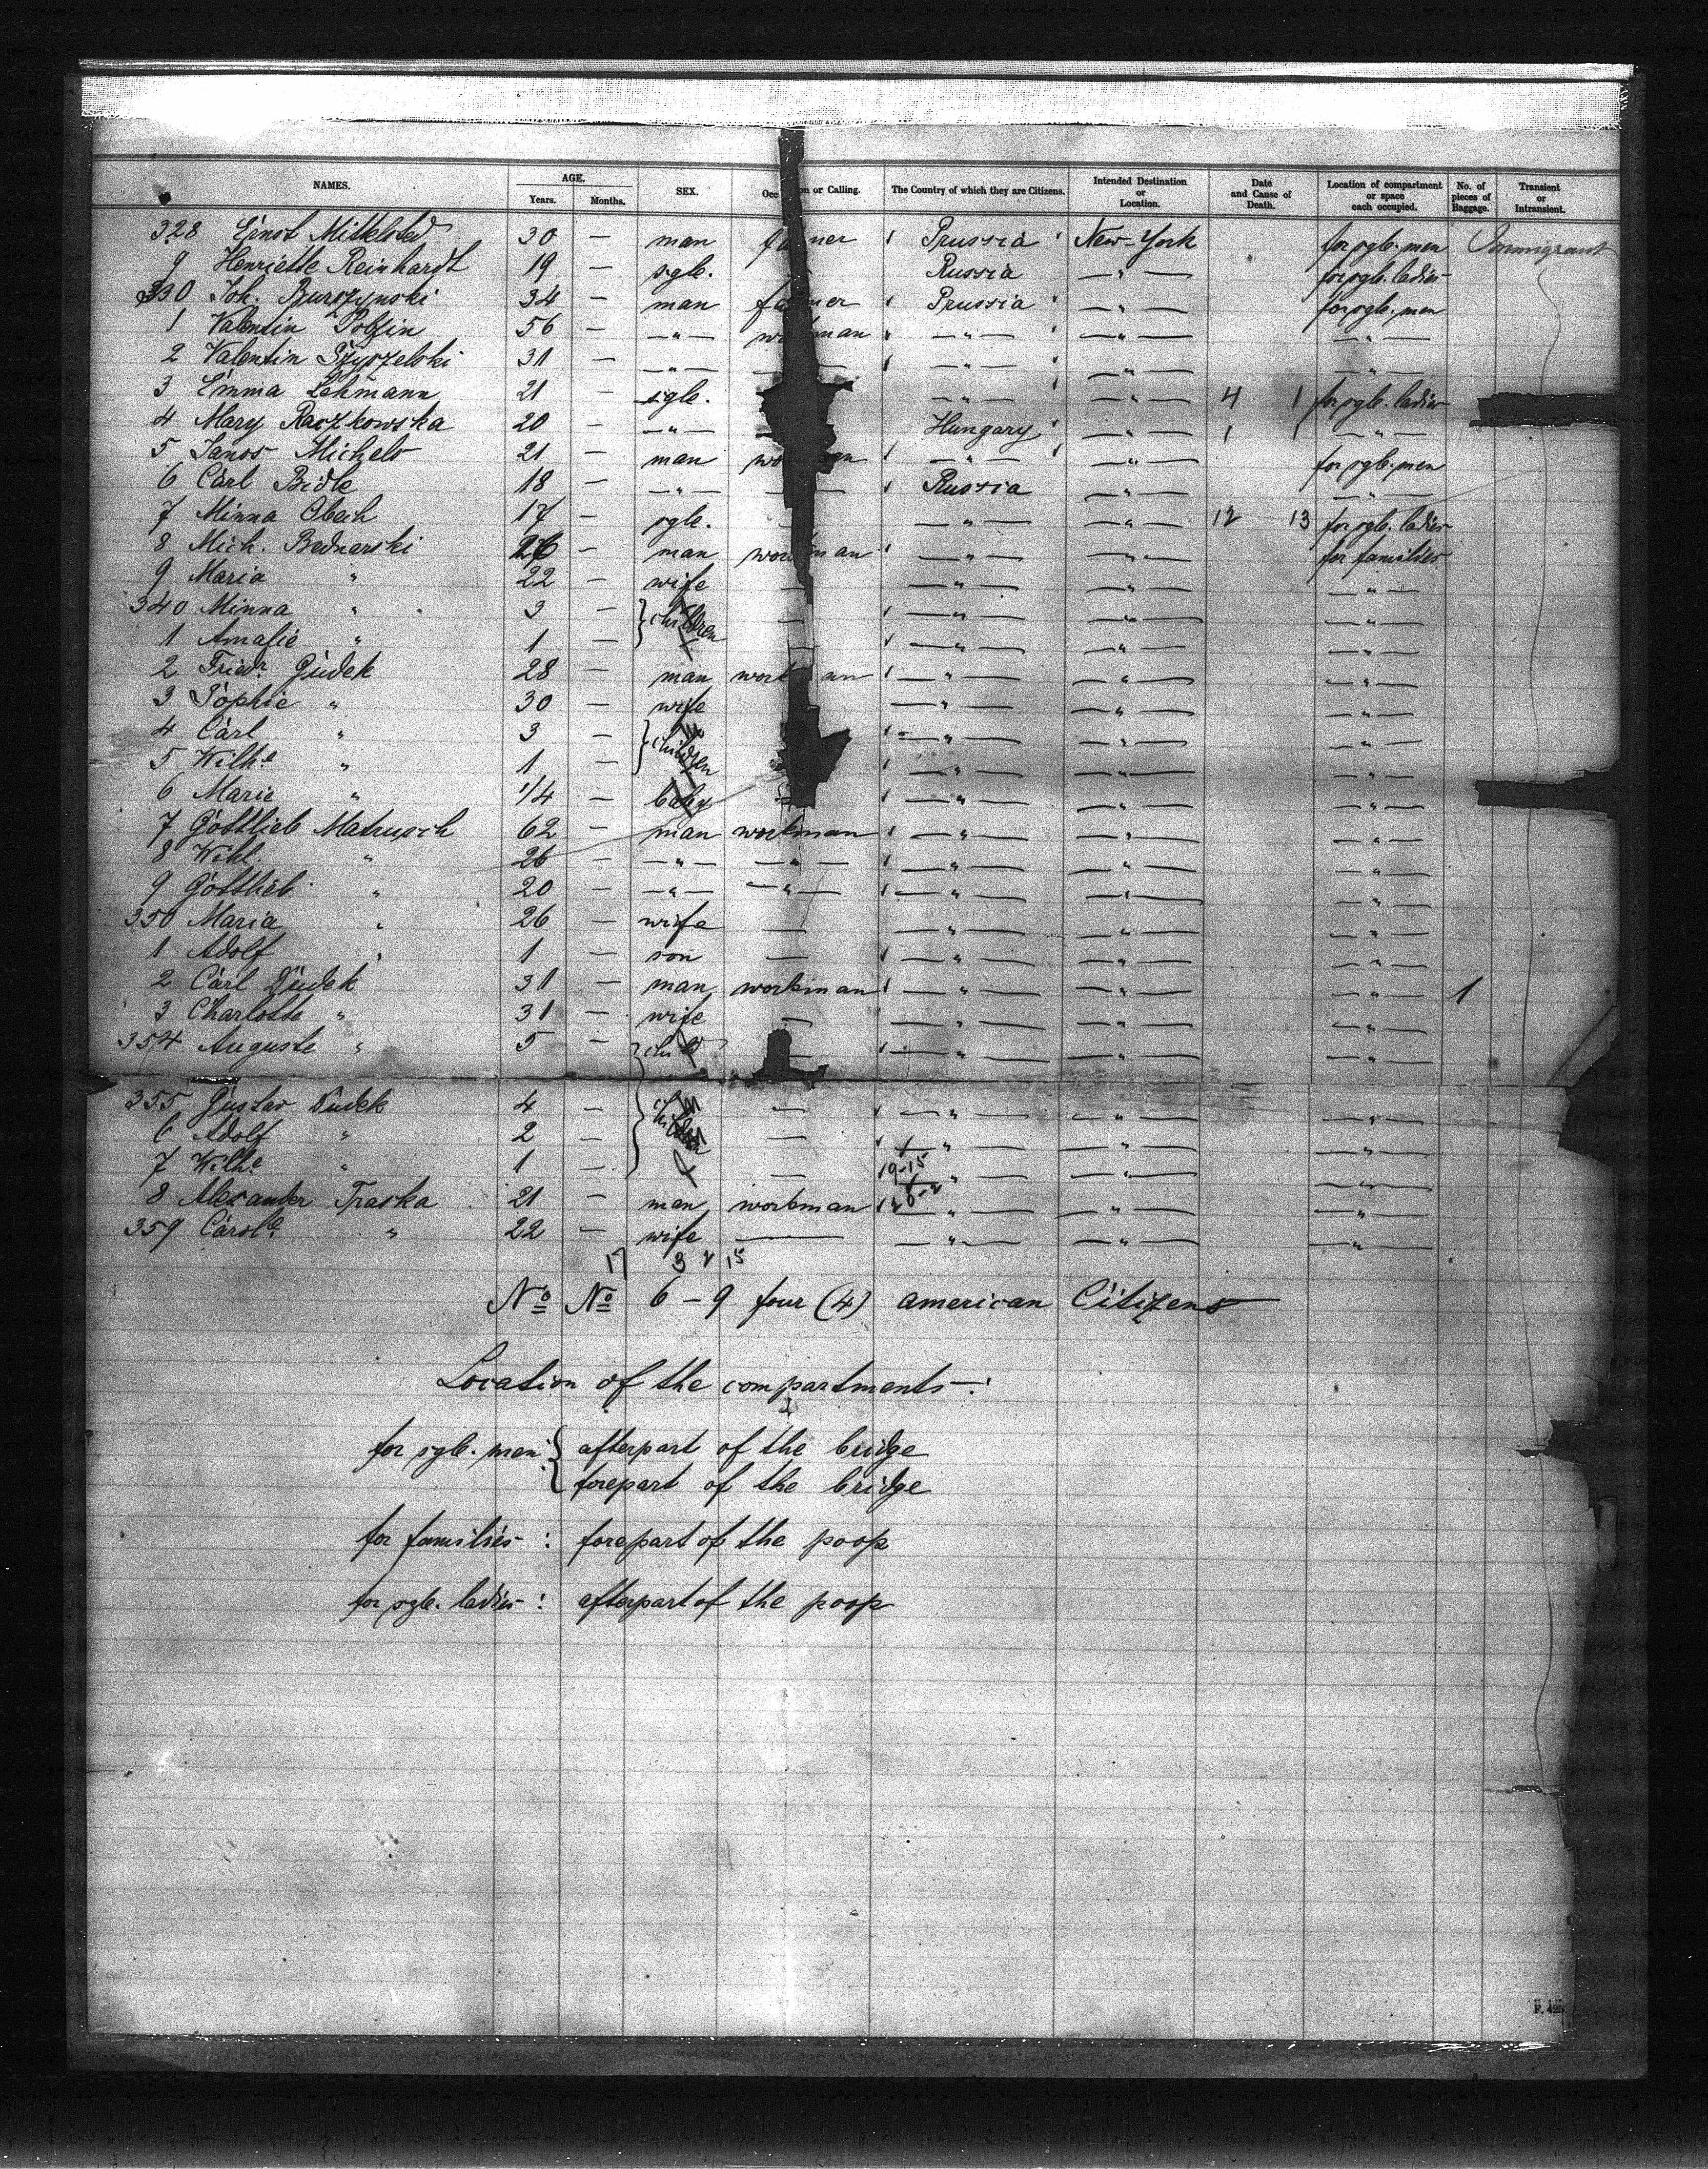 NAMES. AGE. Years. Months. SEX. Occ on or Calling. The Country of which they are Citizens. Intended Destination or Location. Date and Cause of Death. Location of compartment or space each occupied. No. of pieces of Baggage. Transient or Intransient.
328 Ernst Mittelsted 30 — man fa mer Prussia New-York for sgle. men Immigrant
9 Henriette Reinhardt 19 — sgle. Russia — " — for sgle. ladies
330 Joh. Burszynski 34 — man fa mer Prussia — " — for sgle. men
1 Valentin Polzin 56 — — " — w man — " — — " — — " —
2 Valentin 31 — — " — — — " — — " — — " —
3 Emma Lehmann 21 — sigle. — " — — " — 4 1 for sgle. ladies
4 Mary Raczkowska 20 — — " — — Hungary — " — 1 1 — " —
5 Janos Michels 21 — man wo an — " — — " — for sgle. men
6 Carl Bidle 18 — — " — — Russia — " — — " —
7 Minna Obech 17 — sgle. — — " — — " — 12 13 for sgle. ladies
8 Mich. Bednarski 26 — man wor man — " — — " — for families
9 Maria " 22 — wife — — " — — " — — " —
340 Minna " 3 — } children — — " — — " — — " —
1 Amalie " 1 — — — " — — " — — " —
2 Friedr. Gudek 28 — man work an — " — — " — — " —
3 Sophie " 30 — wife — " — — " — — " —
4 Carl " 3 — } children — " — — " — — " —
5 Wilhe " 1 — — " — — " — — " —
6 Marie " 1/4 — baby — — " — — " — — " —
7 Gottlieb Matrusch 62 — man workman — " — — " — — " —
8 Wihl. " 26 — — " — — " — — " — — " — — " —
9 Gottlieb " 20 — — " — — " — — " — — " — — " —
350 Maria " 26 — wife — — " — — " — — " —
1 Adolf " 1 — son — — " — — " — — " —
2 Carl Dudek 31 — man workman — " — — " — — " — 1
3 Charlotte " 31 — wife — — " — — " — — " —
354 Auguste " 5 — child — — " — — " — — " —
355 Gustav Dudek 4 — children — — " — — " — — " —
6 Adolf " 2 — — — " — — " — — " —
7 Wilhe " 1 — — 19-15 " — — " — — " —
8 Alexander Traska 21 — man workman — " — — " — — " —
359 Carole " 22 — wife — — " — — " — — " —
17 3 2 15
No No 6 – 9 four (4) american Citizens
Location of the compartments:
for sgle. men: { afterpart of the bridge
forepart of the bridge
for families: forepart of the poop
for sgle. ladies: afterpart of the poop